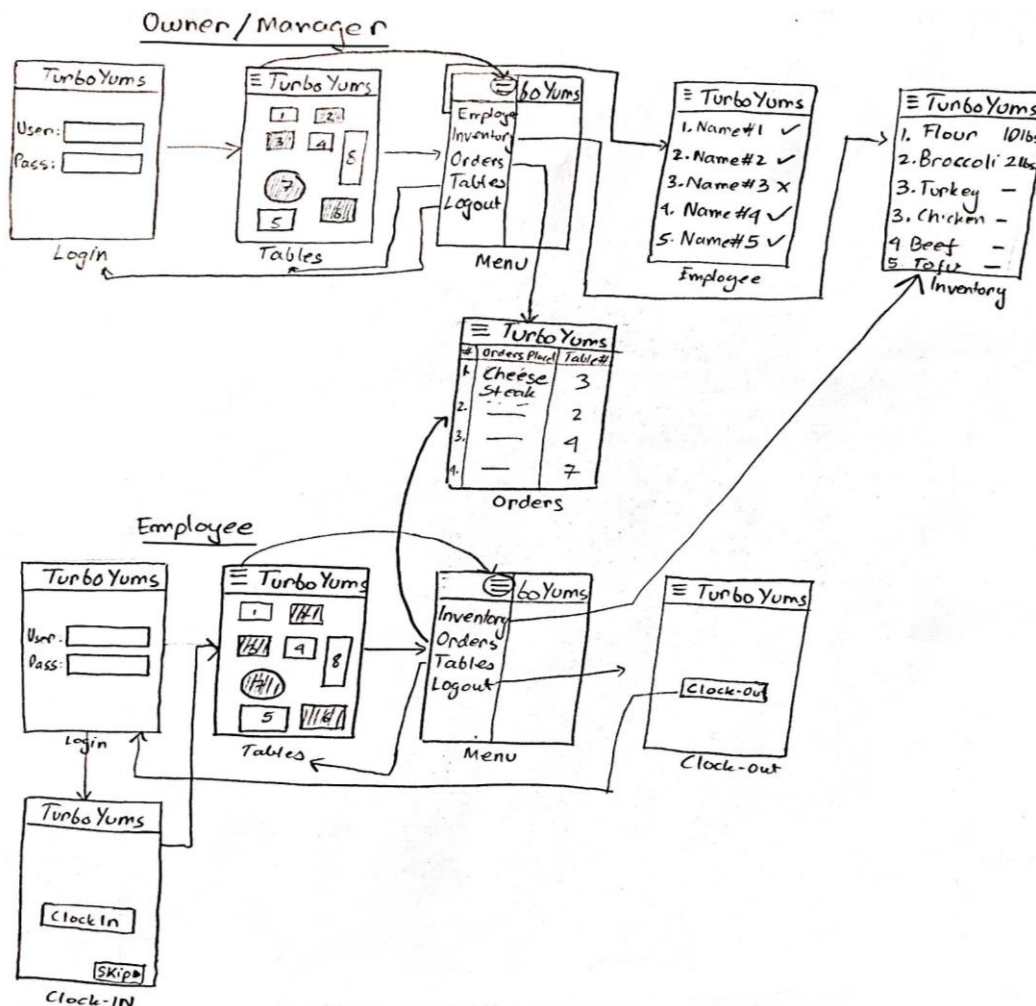 Owner/Manager
TurboYums
User:
Pass:
Login
≡ TurboYums
1 2
3 4 8
7
5 6
Tables
≡ boYums
Employe
Inventory
Orders
Tables
Logout
Menu
≡ TurboYums
1. Name#1 ✓
2. Name#2 ✓
3. Name#3 x
4. Name#4 ✓
5. Name#5 ✓
Employee
≡ TurboYums
1. Flour 10lbs
2. Broccoli 2lbs
3. Turkey —
3. Chicken —
4 Beef —
5. Tofu —
Inventory
≡ TurboYums
# Orders Placed Table#
1. Cheese 3
Steak
2. — 2
3. — 4
4. — 7
Orders
Employee
TurboYums
User:
Pass:
Login
≡ TurboYums
1
4 8
7
5 6
Tables
≡ boYums
Inventory
Orders
Tables
Logout
Menu
≡ TurboYums
Clock-Out
Clock-Out
TurboYums
Clock In
Skip
Clock-IN